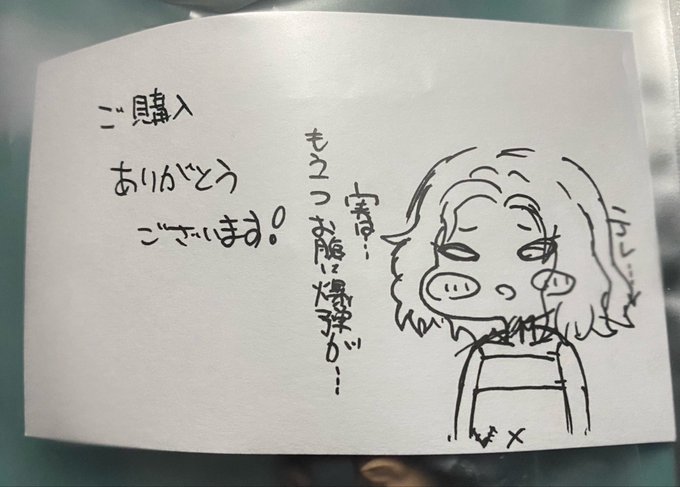 ご購入
ありがとう
ございます!
実は…
もう一つお腹に爆弾が…